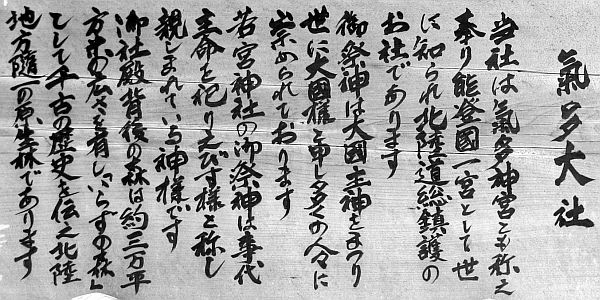 氣多大社
当社は氣多神宮とも称え
奉り能登國一宮として世
に知られ北陸道総鎮護の
お社であります
御祭神は大國主神をまつり
世に大國様と申し多くの人々に
崇められております
若宮神社の御祭神は事代
主命を祀りえびす様と称し
親しまれている神様です
御社殿背後の森は約三万平
方米の広さを有しいらずの森
として千古の歴史を伝え北陸
地方随一の原生林であります